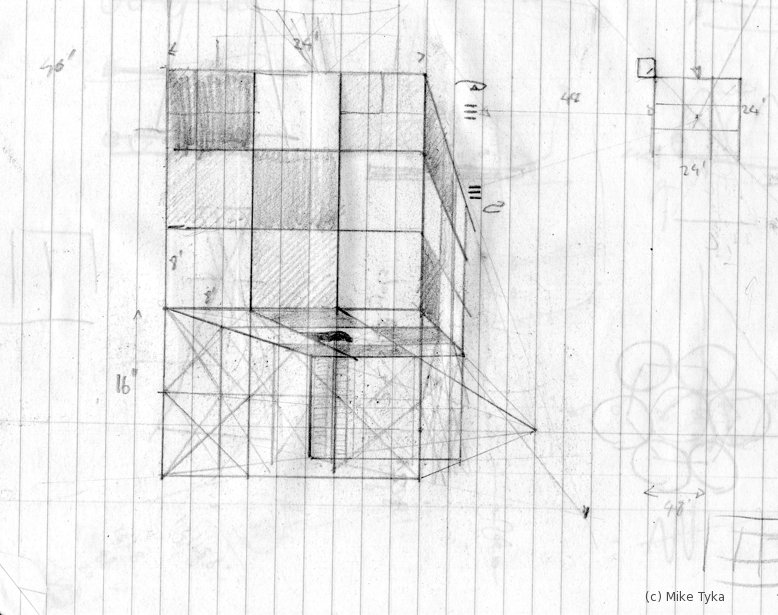 24'
48
24'
24'
8'
8'
16"
48'
(c) Mike Tyka